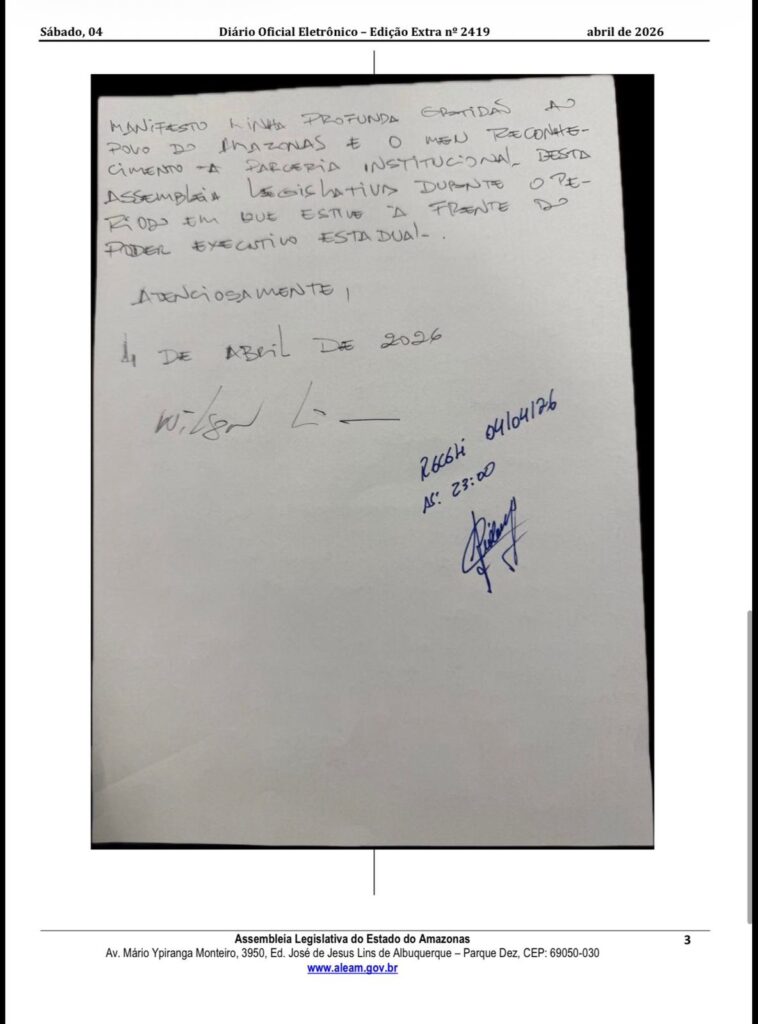 Sábado, 04 Diário Oficial Eletrônico – Edição Extra nº 2419 abril de 2026
MANIFESTO MINHA PROFUNDA GRATIDÃO AO
POVO DO AMAZONAS E O MEU RECONHE-
CIMENTO A PARCERIA INSTITUCIONAL DESTA
ASSEMBLEIA LEGISLATIVA DURANTE O PE-
RÍODO EM QUE ESTIVE À FRENTE DO
PODER EXECUTIVO ESTADUAL.
ATENCIOSAMENTE,
4 DE ABRIL DE 2026
Wilson Li
Recebi 04/04/26
ÀS: 23:00
Assembleia Legislativa do Estado do Amazonas
3
Av. Mário Ypiranga Monteiro, 3950, Ed. José de Jesus Lins de Albuquerque – Parque Dez, CEP: 69050-030
www.aleam.gov.br